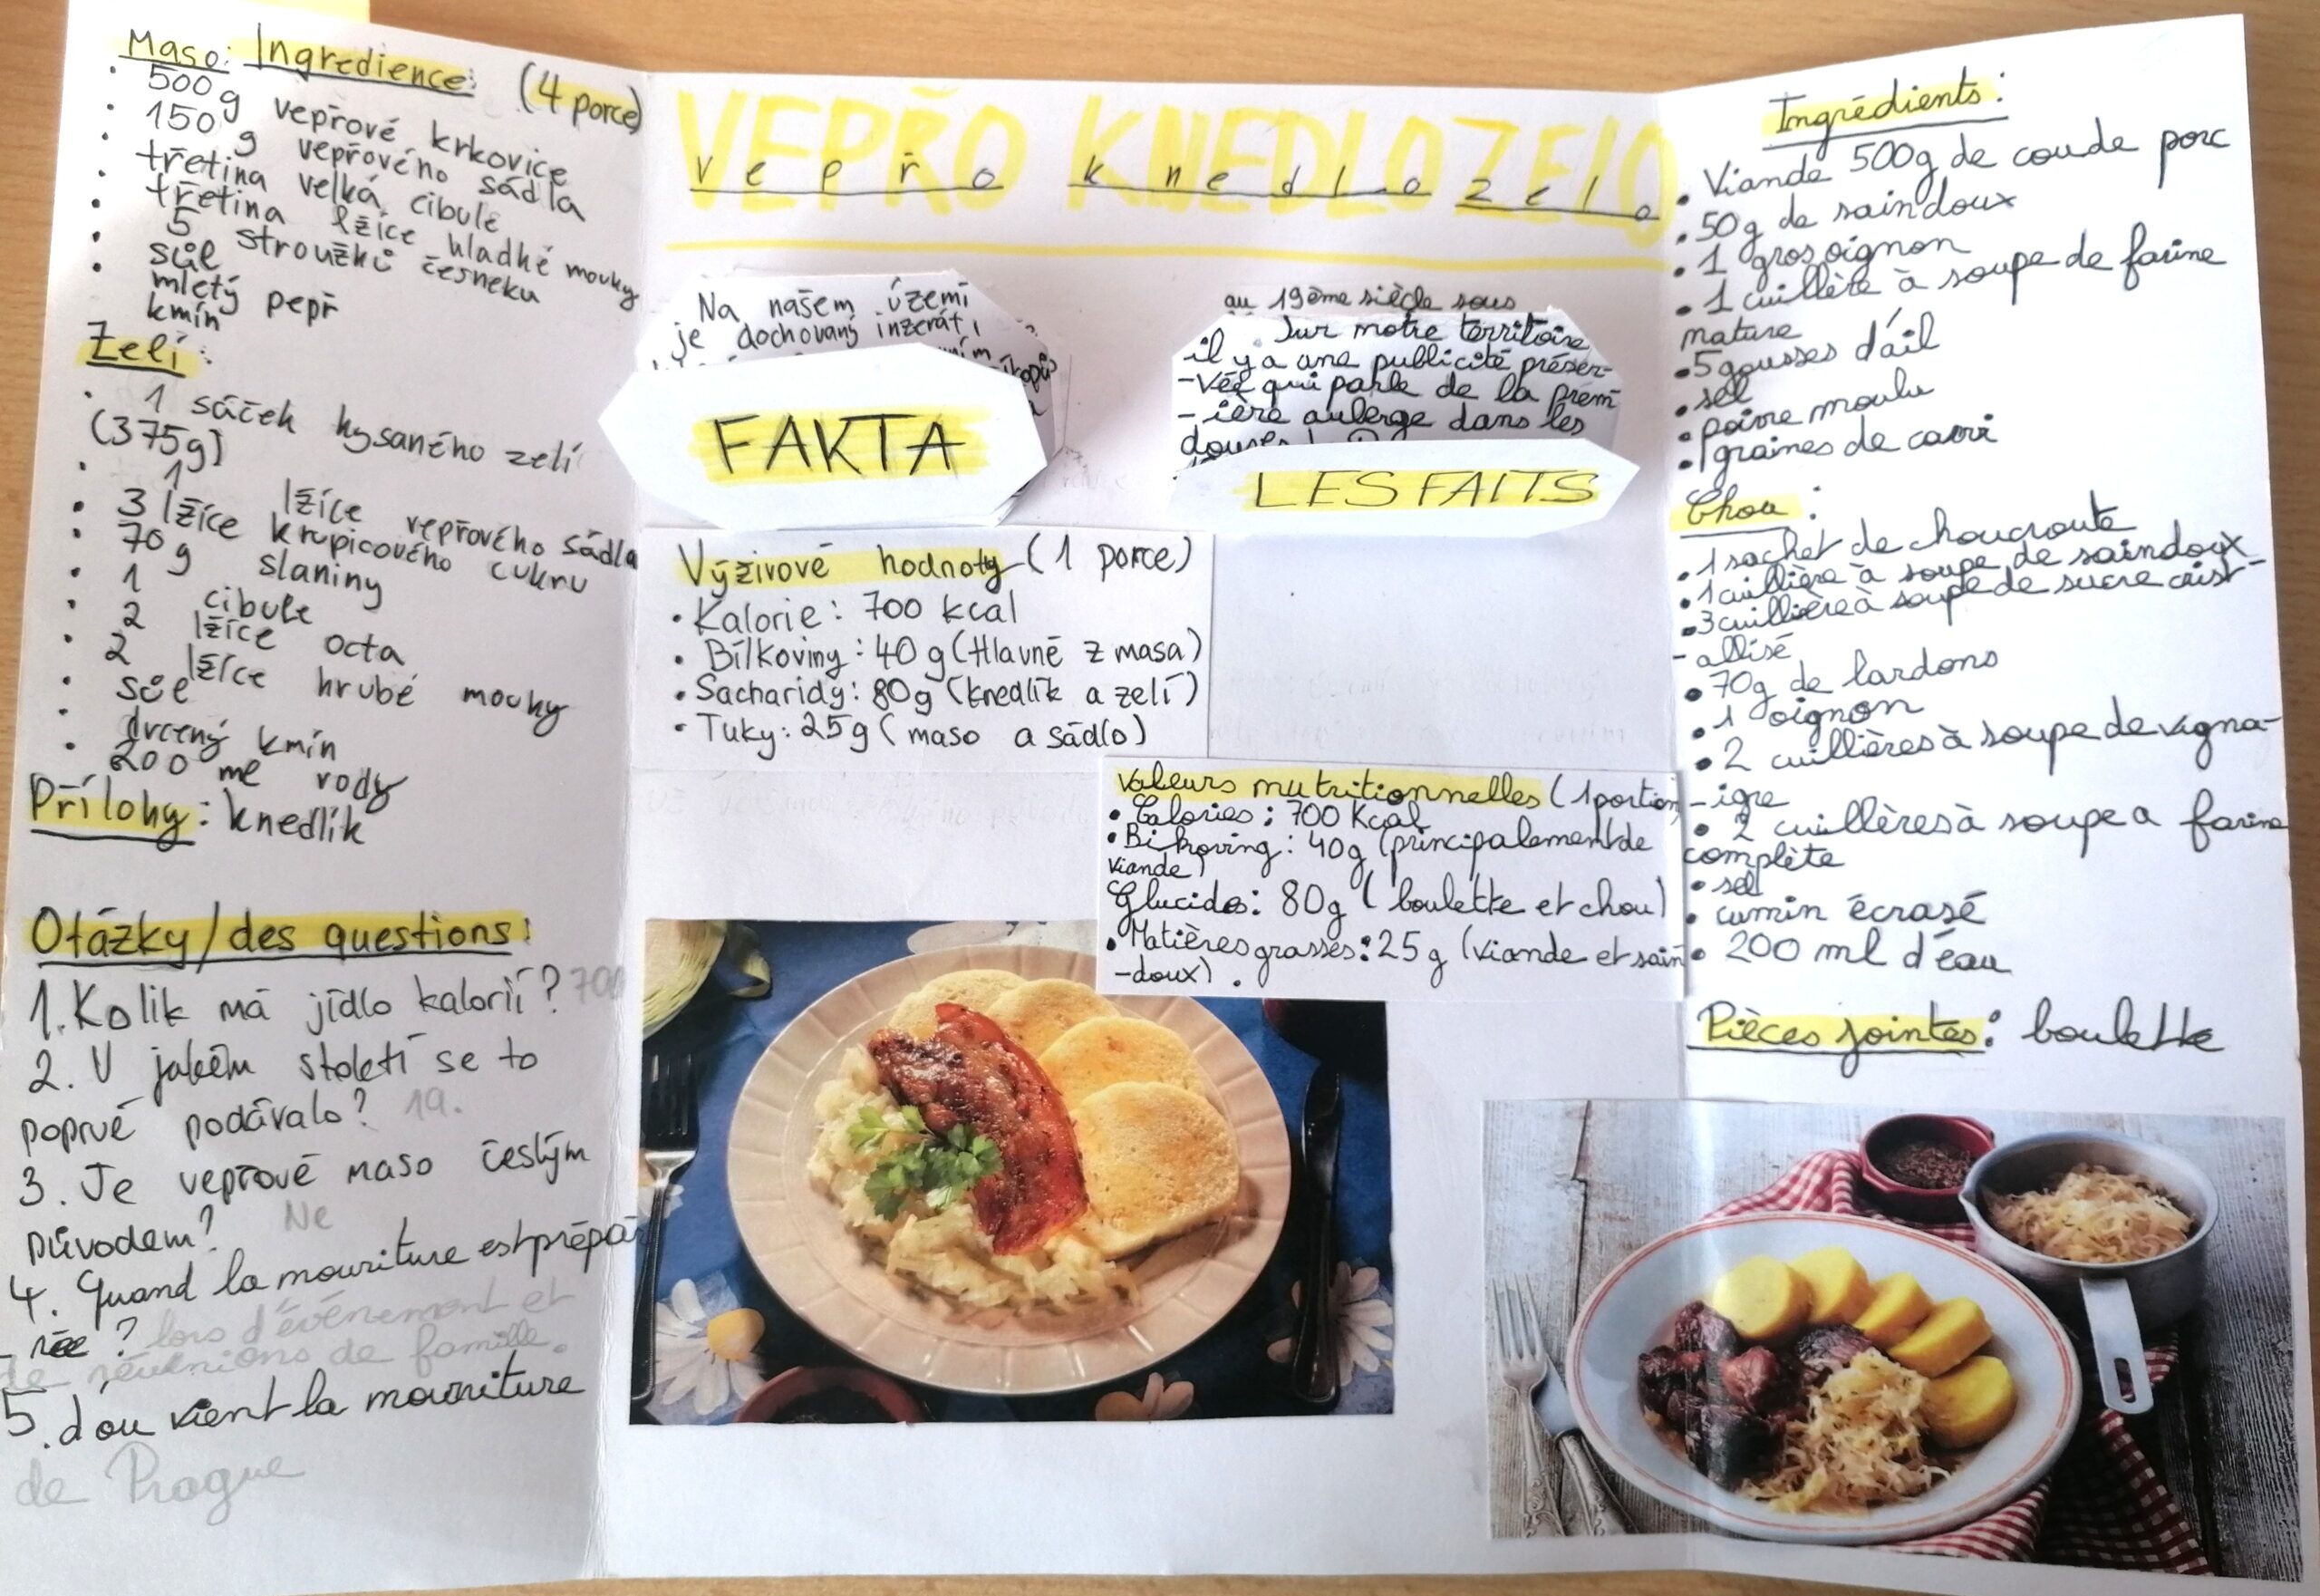 Maso: Ingredience: (4 porce)
• 500 g vepřové krkovice
• 150 g vepřového sádla
• třetina velká cibule
• třetina lžíce hladké mouky
• 5 stroužků česneku
• sůl
• mletý pepř
• kmín
Zelí:
• 1 sáček kysaného zelí
(375g)
• 1 lžíce vepřového sádla
• 3 lžíce krupicového cukru
• 70 g slaniny
• 1 cibule
• 2 lžíce octa
• 2 lžíce hrubé mouky
• sůl
• drcený kmín
• 200 ml vody
Přílohy: knedlík
Otázky/des questions:
1. Kolik má jídlo kalorií? 700
2. V jakém století se to
poprvé podávalo? 19.
3. Je vepřové maso českým
původem? Ne
4. Quand la mouriture est prépar
- rée? lors d'événement et
de réunions de famille.
5. d'ou vient la mouriture
de Prague
VEPŘO KNEDLOZELO
Vepřo knedlozelo
Na našem území
je dochovaný inzerát,
FAKTA
au 19ème siècle sous
Sur notre territoire
il y a une publicité préser-
-vée qui parle de la prem
-ière auberge dans les
LES FAITS
Výživové hodnoty (1 porce)
• Kalorie: 700 kcal
• Bílkoviny: 40 g (Hlavně z masa)
• Sacharidy: 80g (knedlík a zelí)
• Tuky: 25g (maso a sádlo)
Valeurs nutritionnelles (1 portion)
• Calories: 700 Kcal
• Bikoving: 40g (principalement de
viande)
Glucides: 80g (boulette et chou)
• Matières grasses: 25 g (viande et sain
-doux).
Ingrédients:
• Viande 500g de cou de porc
• 50g de saindoux
• 1 gros oignon
• 1 cuillète à soupe de farine
nature
• 5 gousses d'ail
• sel
• poivre moulu
• graines de carvi
Chou:
• 1 sachet de choucroute
• 1 cuillière à soupe de saindoux
• 3 cuillière à soupe de sucre crist-
- allisé
• 70g de lardons
• 1 oignon
• 2 cuillières à soupe de vigna-
- igre
• 2 cuillères à soupe a farine
complète
• sel
• cumin écrasé
• 200 ml d'éau
Pièces jointes: boulette